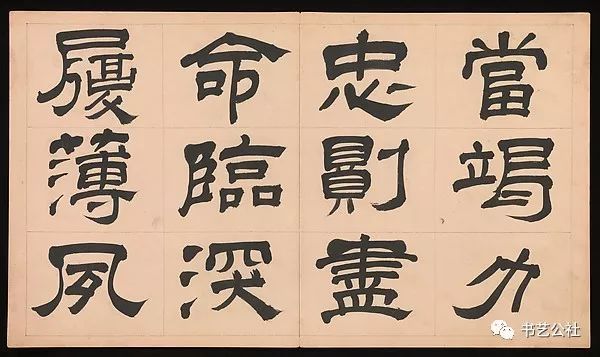 當竭力
忠則盡
命臨深
履薄夙
书艺公社